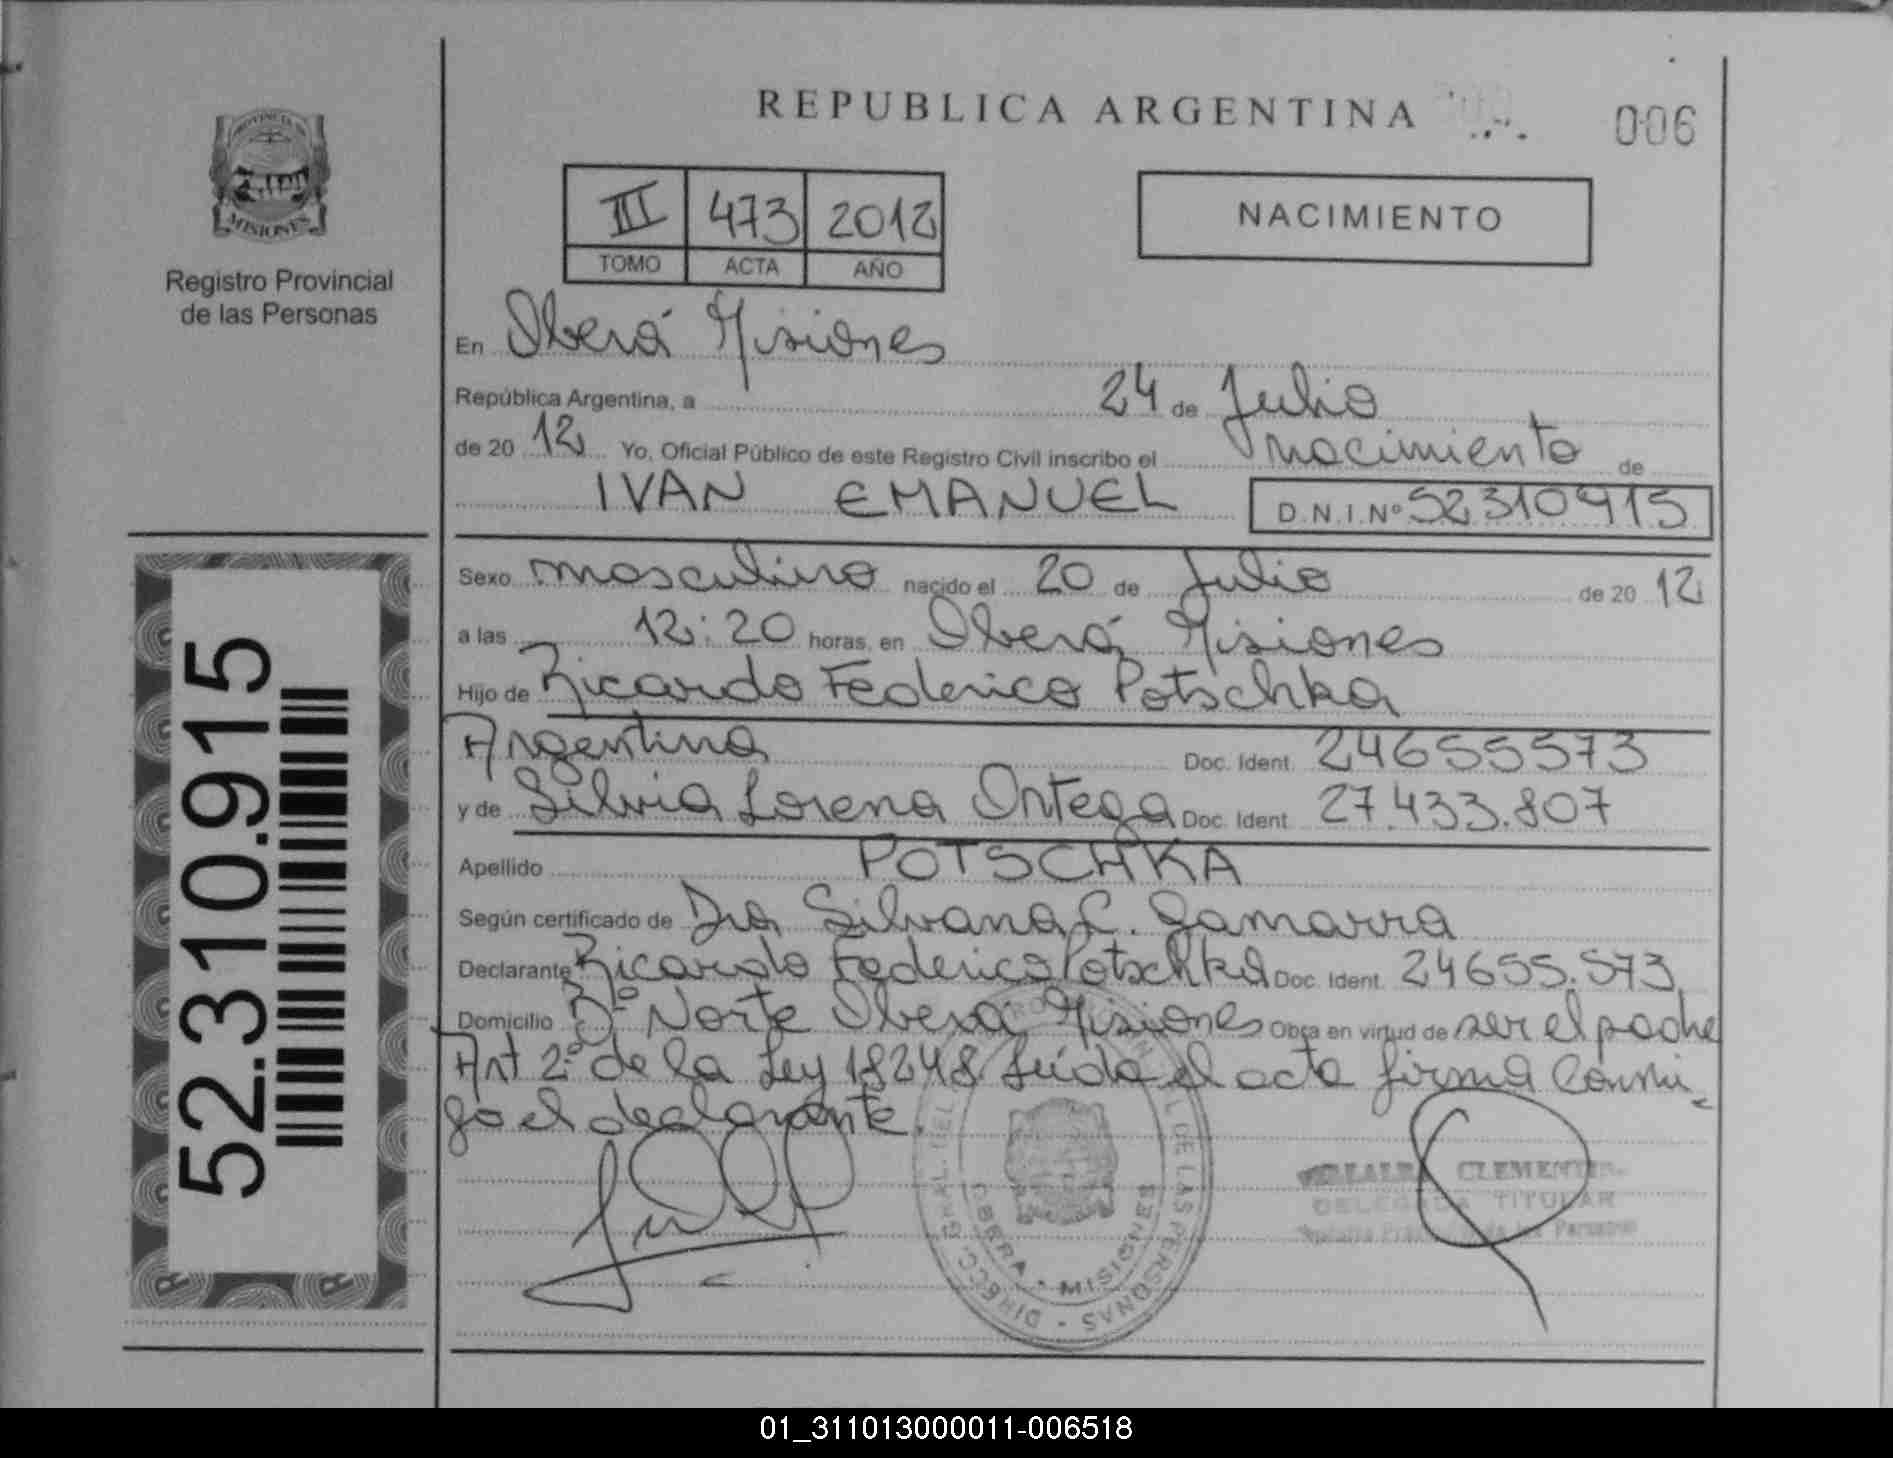 REPUBLICA ARGENTINA
006
PROVINCIA DE
MISIONES
Registro Provincial
de las Personas
III 473 2012
TOMO ACTA AÑO
NACIMIENTO
En Oberá Misiones
República Argentina, a 24 de Julio
de 20 12 Yo, Oficial Público de este Registro Civil inscribo el nacimiento de
IVAN EMANUEL D.N.I.Nº 52310915
Sexo masculino nacido el 20 de Julio de 20 12
a las 12:20 horas, en Oberá Misiones
Hijo de Ricardo Federico Potschka
Argentina Doc. Ident. 24655573
y de Silvia Lorena Ortega Doc. Ident. 27.433.807
Apellido POTSCHKA
Según certificado de Dra Silvana L. Gamarra
Declarante Ricardo Federico Potschka Doc. Ident. 24655.573
Domicilio Bº Norte Oberá Misiones Obra en virtud de ser el padre
Art 2º de la Ley 18248 Leída el acta firma conmi
go el declarante.
52.310.915
CLEMENTE
DELEGADA TITULAR
DE LAS PERSONAS
OBERA - MISIONES
01_311013000011-006518